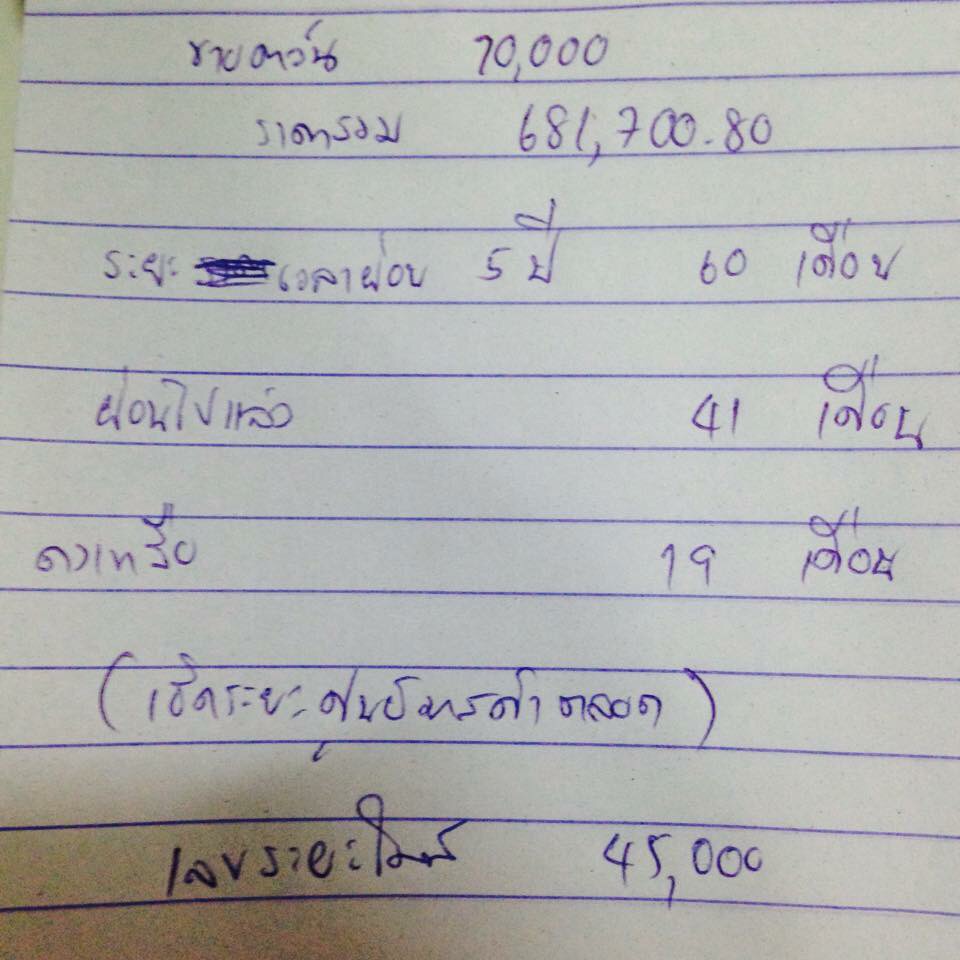 ขายดาวน์ 70,000
ราคารวม 681,700.80
ระยะ เวลาผ่อน 5 ปี 60 เดือน
ผ่อนไปแล้ว 41 เดือน
คงเหลือ 19 เดือน
(เช็คระยะศูนย์มาสด้าตลอด)
เลขระยะไมล์ 45,000